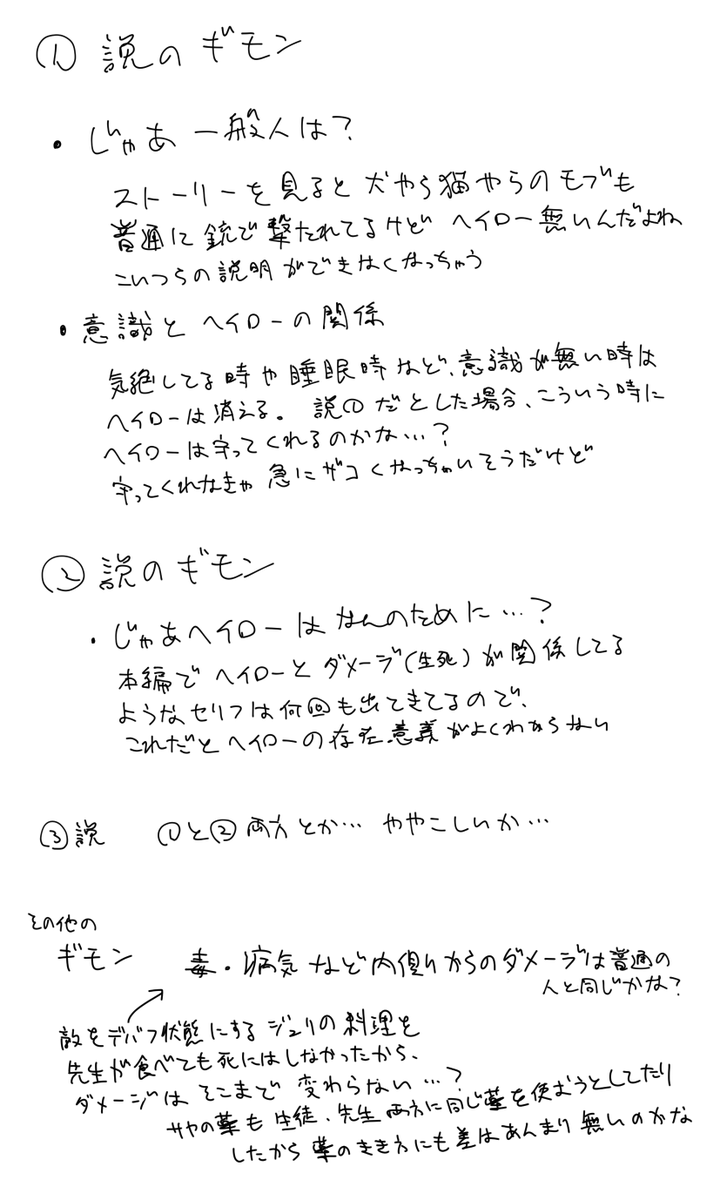 ① 説のギモン
・じゃあ一般人は？
ストーリーを見ると犬やら猫やらのモブも
普通に銃で撃たれてるけど ヘイロー無いんだよね
こいつらの説明ができなくなっちゃう
・意識とヘイローの関係
気絶してる時や睡眠時など、意識が無い時は
ヘイローは消える。説①だとした場合、こういう時に
ヘイローは守ってくれるのかな…？
守ってくれなきゃ急にザコくなっちゃいそうだけど
② 説のギモン
・じゃあヘイローはなんのために…？
本編でヘイローとダメージ(生死)が関係してる
ようなセリフは何回も出てきてるので、
これだとヘイローの存在意義がよくわからない
③説 ①と②両方とか… ややこしいか…
その他の
ギモン 毒・病気など内側からのダメージは普通の
人と同じかな？
敵をデバフ状態にするジュリの料理を
先生が食べても死にはしなかったから、
ダメージはそこまで変わらない…？
サヤの薬も生徒、先生両方に同じ薬を使おうとしてたり
したから薬のきき方にも差はあんまり無いのかな